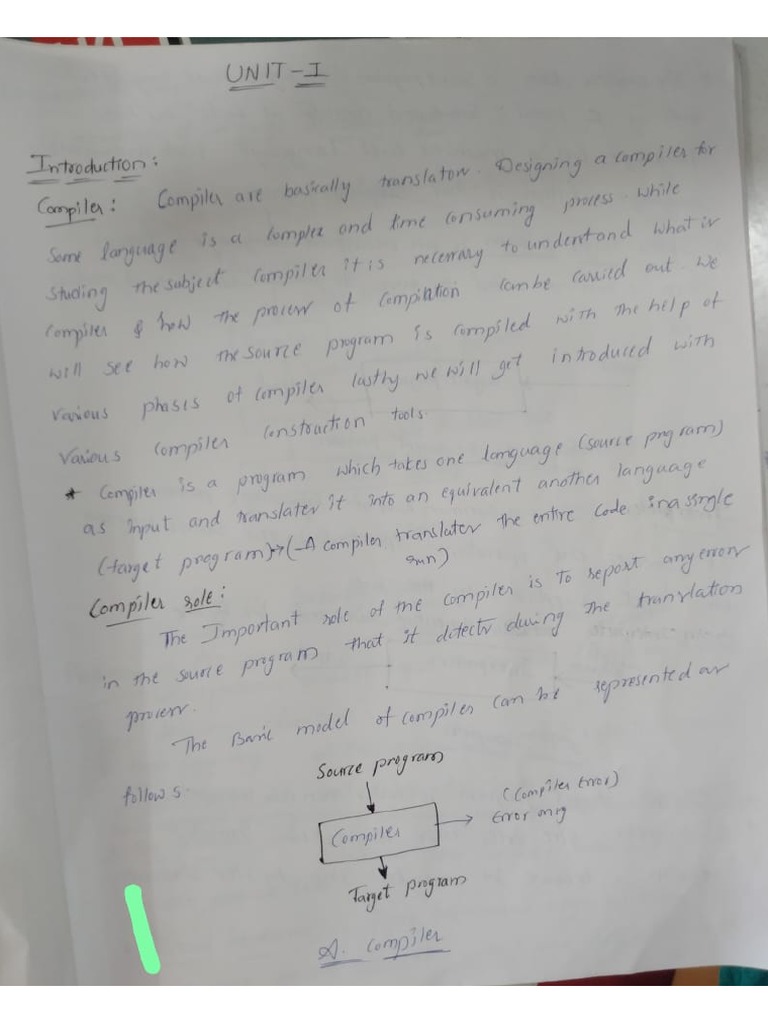 UNIT-I
Introduction:
Compiler: Compiler are basically translator. Designing a compiler for
some language is a complex and time consuming process. While
studing the subject compiler it is necessary to understand what is
compiler & how the process of compilation can be carried out. We
will see how the source program is compiled with the help of
various phases of compiler lastly we will get introduced with
various compiler constraction tools.
* Compiler is a program which takes one language (source program)
as input and translates it into an equivalent another language
(target program) → (-A compiler translates the entire code in a single
run)
Compiler role:
The Important role of the compiler is to report any errors
in the source program that it detects during the translation
process.
The Basic model of compiler can be represented as
follows.
Source program
(Compiler Error)
Compiler → Error msg
Target program
A. compiler